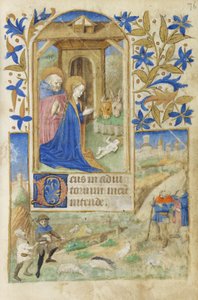 Deus in adiu
torium meu
intende.